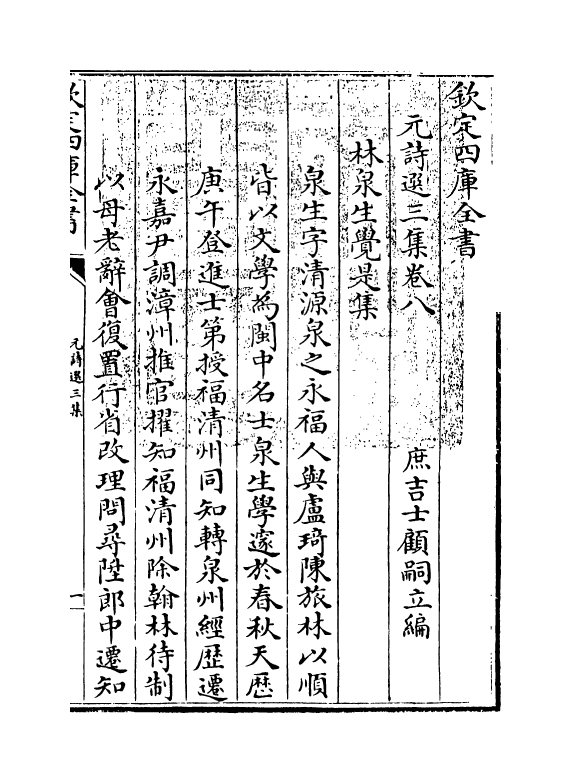 欽定四庫全書
元詩選三集卷八
庶吉士顧嗣立編
林泉生覺是集
泉生字清源泉之永福人與盧琦陳旅林以順
皆以文學為閩中名士泉生學邃於春秋天歷
庚午登進士第授福清州同知轉泉州經歷遷
永嘉尹調漳州推官擢知福清州除翰林待制
以母老辭會復置行省改理問尋陞郎中遷知
欽定四庫全書
元詩選三集
一